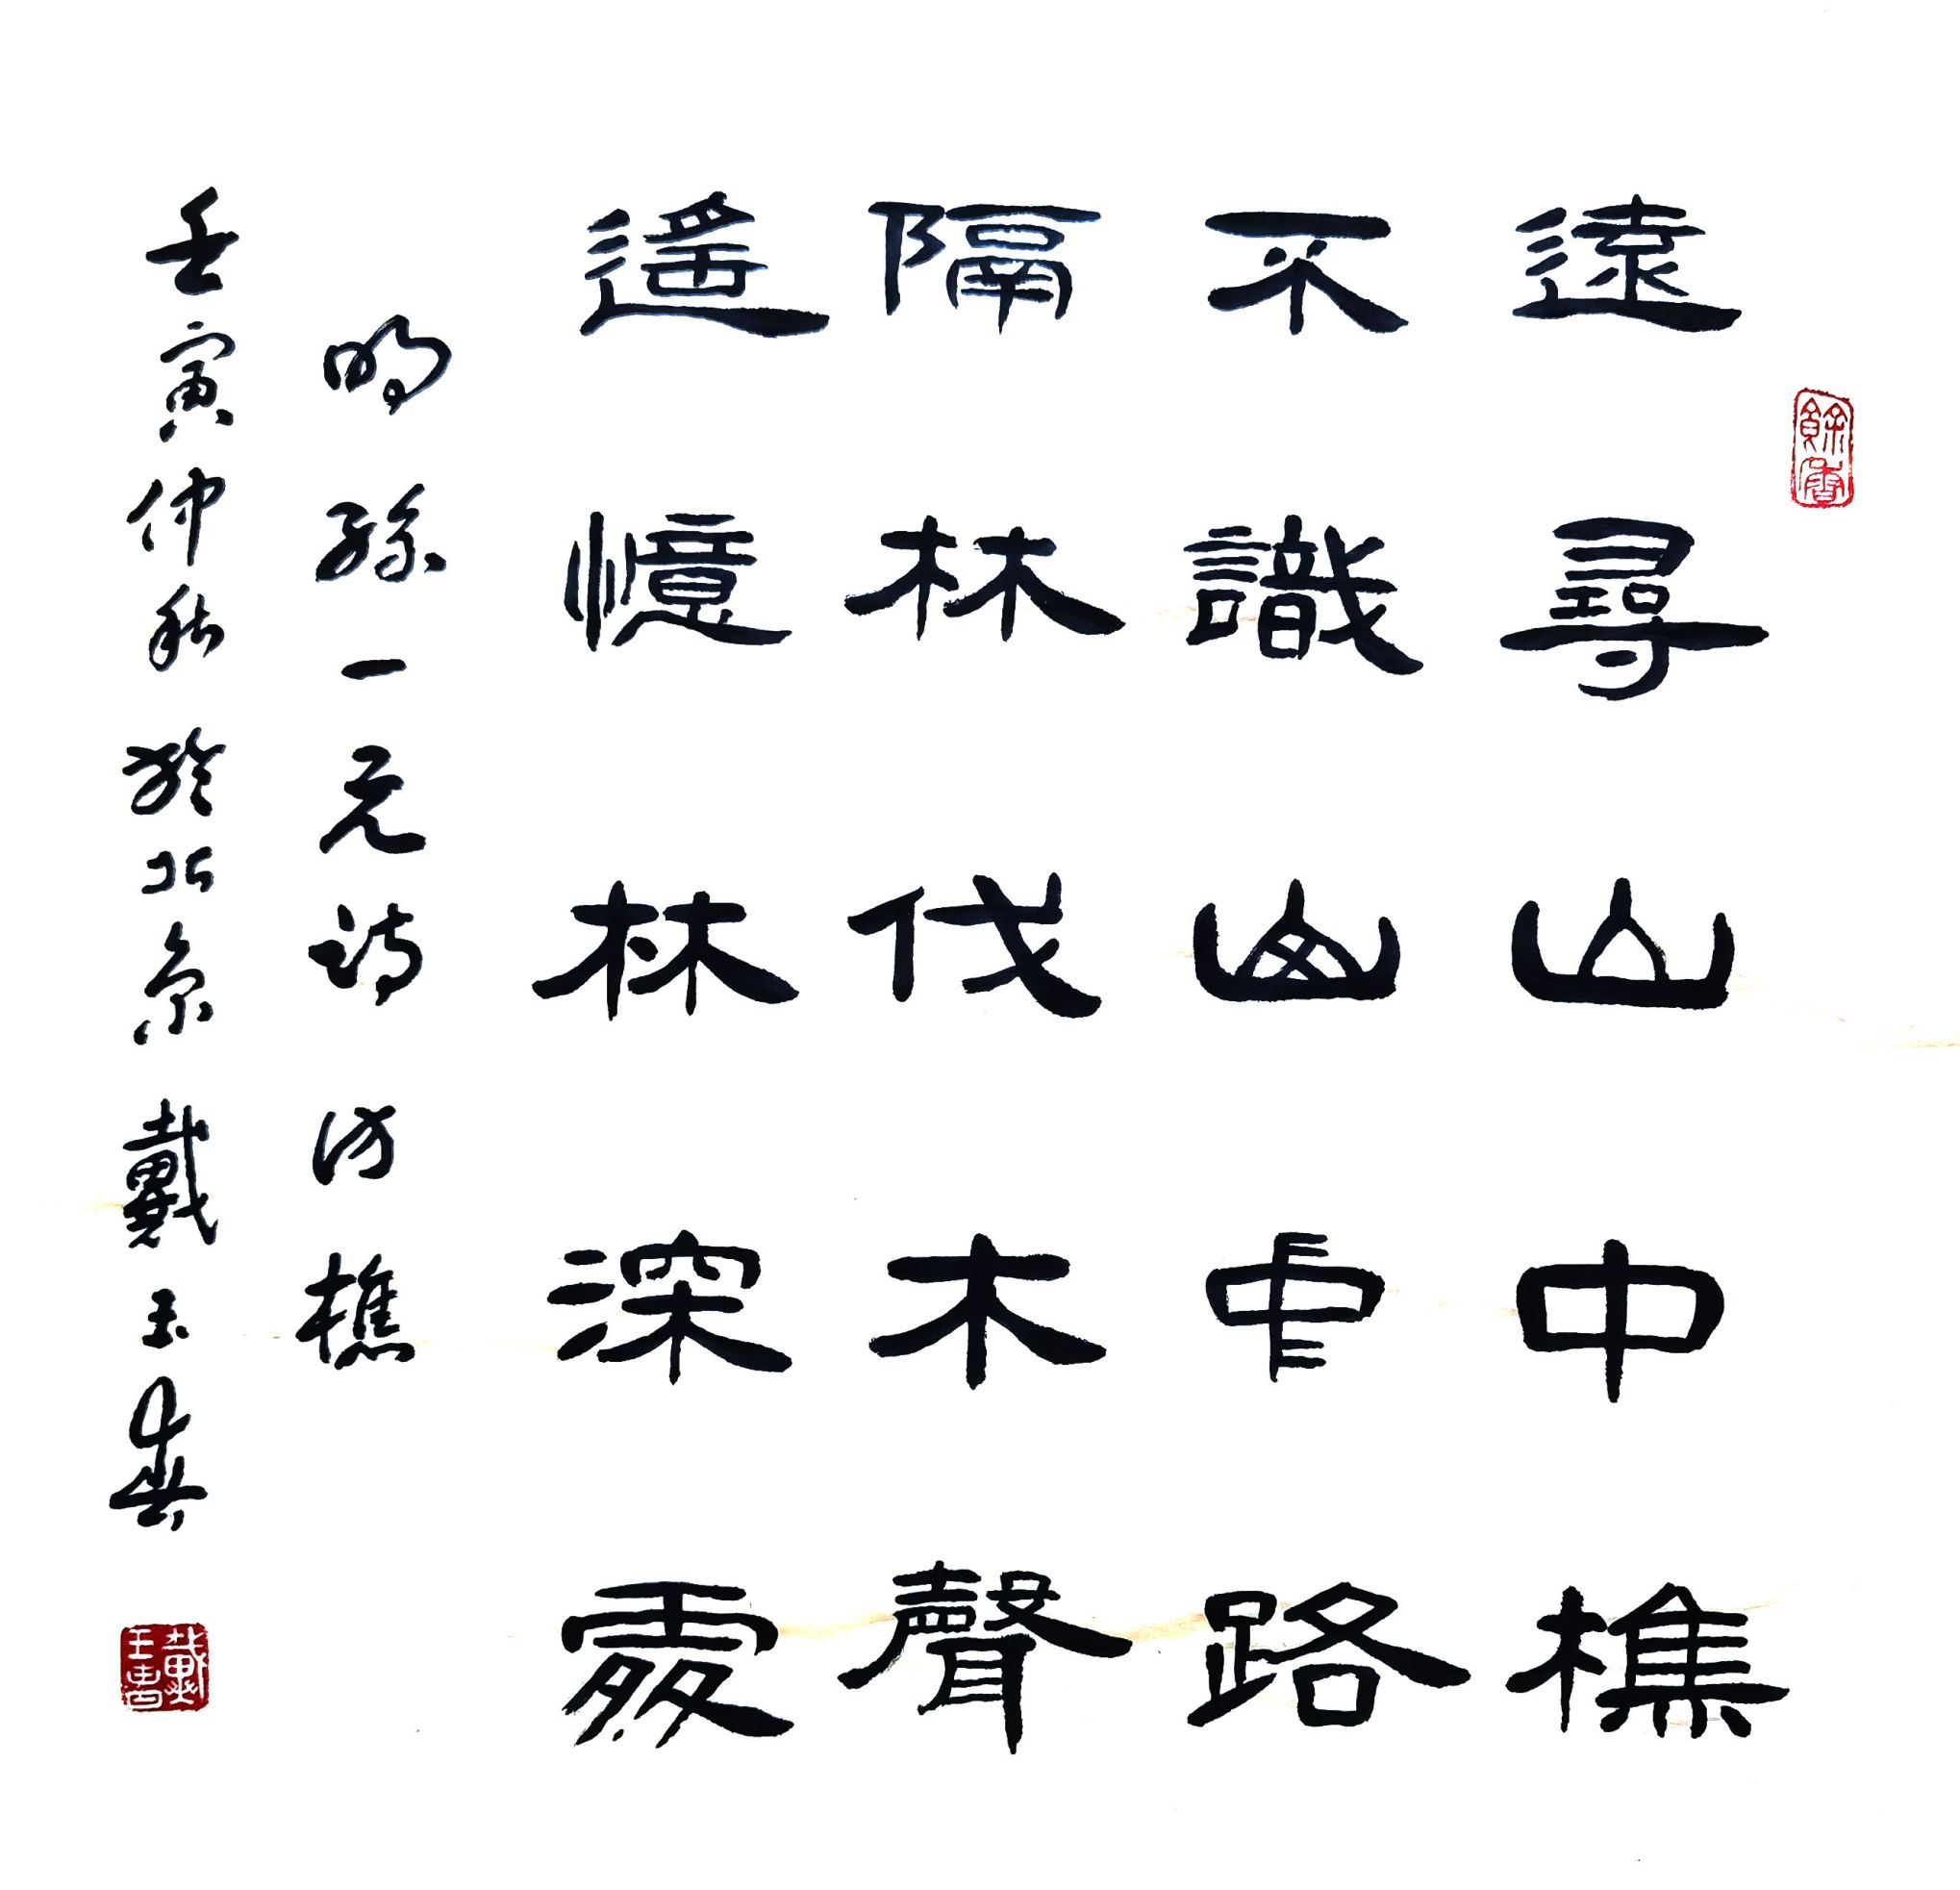 遠尋山中樵
不識山中路
隔林伐木聲
遙憶林深處
明孫一元詩訪樵
壬寅仲秋於北京戴玉
餘香